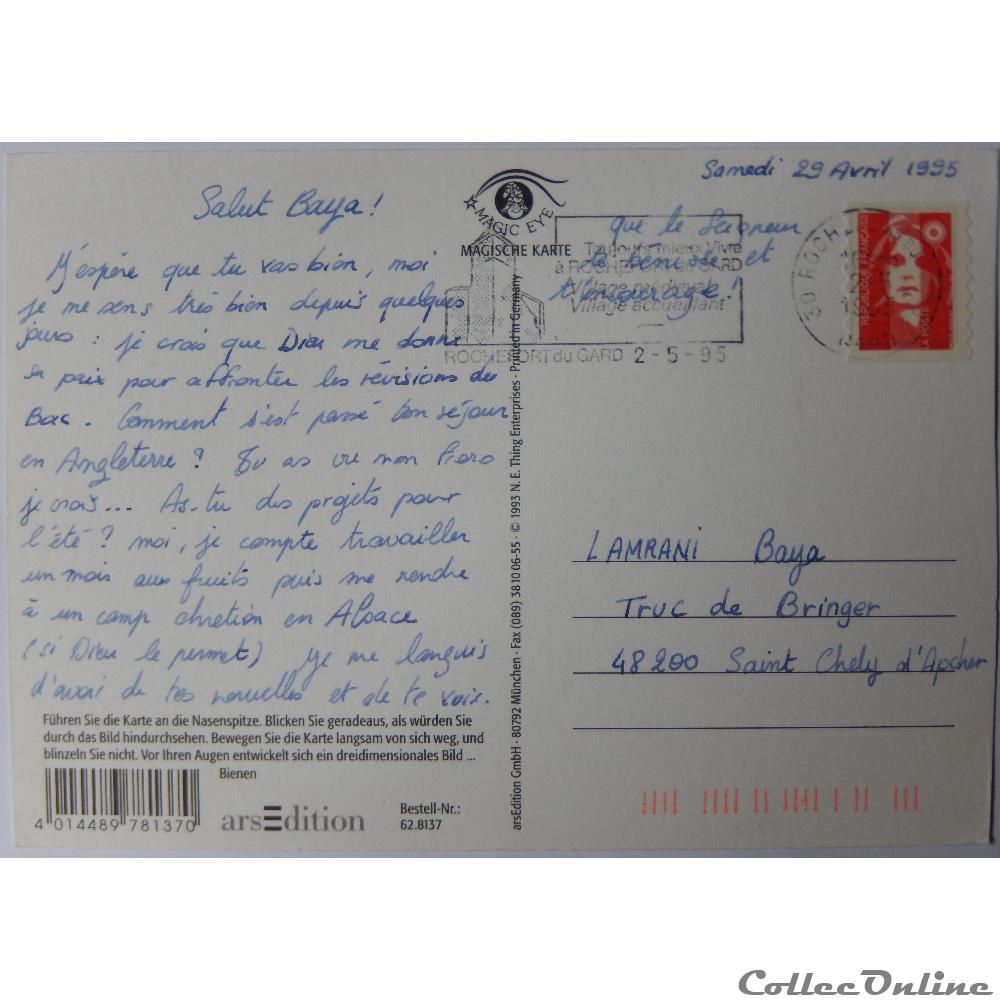 Samedi 29 Avril 1995
Salut Baya !
J'espère que tu vas bien, moi
je me sens très bien depuis quelques
jours : je crois que Dieu me donne
sa paix pour affronter les révisions du
Bac. Comment s'est passé ton séjour
en Angleterre ? Tu as vu mon
je crois... As-tu des projets pour
l'été ? moi, je compte travailler
un mois aux fruits puis me rendre
à un camp chrétien en Alsace
(si Dieu le permet) je me languis
d'avoir de tes nouvelles et de te voir.
que le Seigneur
te bénisse et
t'encourage !
MAGIC EYE
MAGISCHE KARTE
Toujours mieux Vivre
à ROCHEFORT du GARD
Village médiéval
Village accueillant
ROCHEFORT du GARD 2-5-95
30 ROCH
REPUBLIQUE FRANÇAISE
LA POSTE
LAMRANI Baya
Truc de Bringer
48200 Saint Chely d'Apcher
arsEdition GmbH · 80792 München · Fax (089) 38 10 06-55 · © 1993 N. E. Thing Enterprises · Printed in Germany
Führen Sie die Karte an die Nasenspitze. Blicken Sie geradeaus, als würden Sie
durch das Bild hindurchsehen. Bewegen Sie die Karte langsam von sich weg, und
blinzeln Sie nicht. Vor Ihren Augen entwickelt sich ein dreidimensionales Bild ...
Bienen
4 014489 781370
arsEdition
Bestell-Nr.:
62.8137
CollecOnline